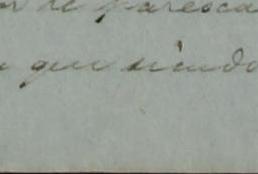 de paresca
que siendo